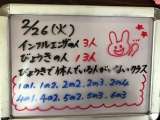 2/26(火)
インフルエンザの人 3人
びょうきの人 13人
びょうきで休んでいる人がいないクラス
1の1. 1の2. 2の2. 2の3.
4の1. 4の2. 5の2. 6の3. 6の3